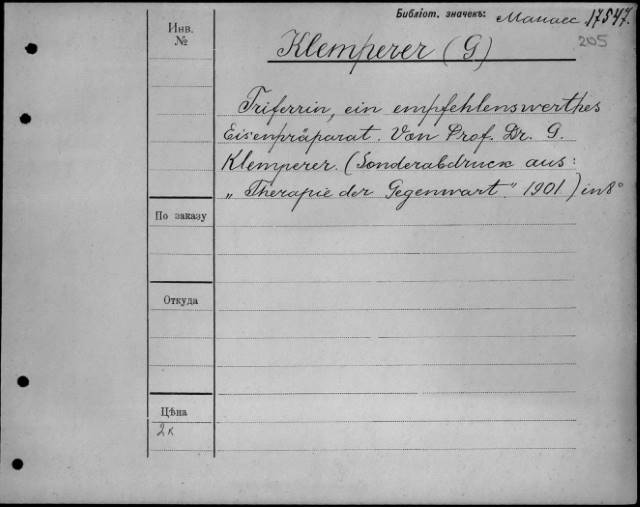 Библіот. значекъ: Манасс 17547.
205
Инв.
№
Klemperer (G)
Triferrin, ein empfehlenswerthes
Eisenpräparat. Von Prof. Dr. G.
Klemperer. (Sonderabdruck aus:
„Therapie der Gegenwart." 1901) in 8°
По заказу
Откуда
Цѣна
2к